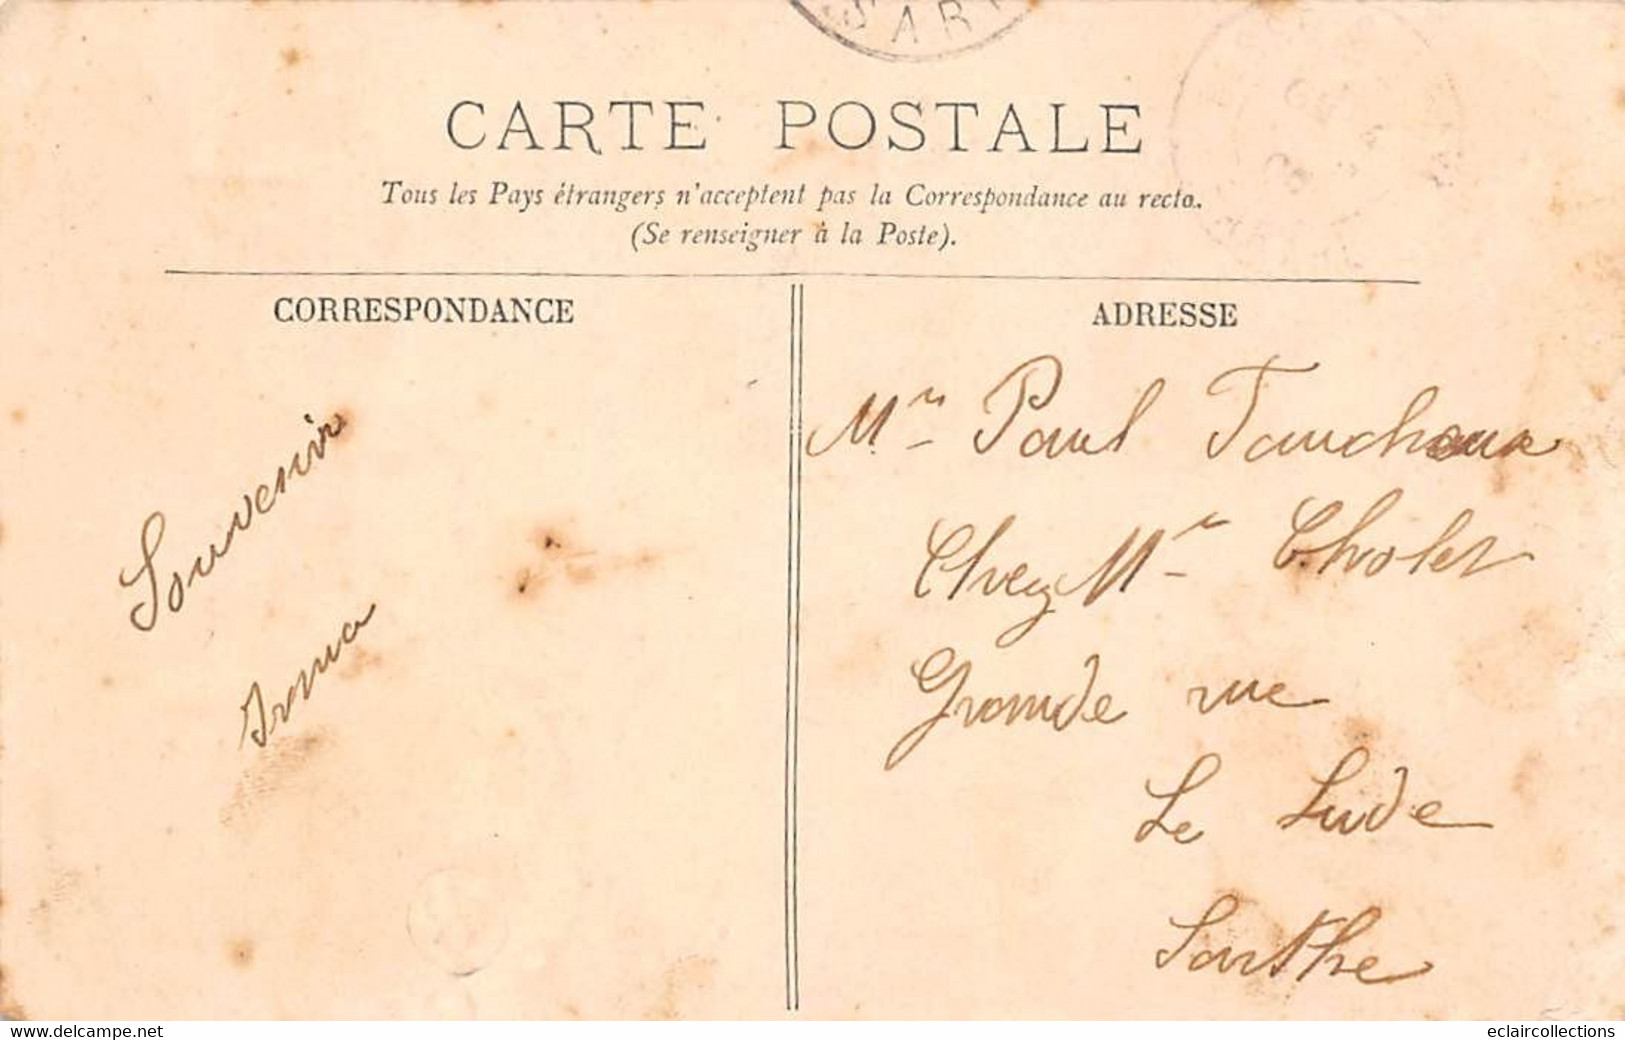 CARTE POSTALE
Tous les Pays étrangers n'acceptent pas la Correspondance au recto.
(Se renseigner à la Poste).
CORRESPONDANCE
ADRESSE
Souvenir
Irma
Paul
Chez Mr Cholet
Grande rue
Le Lude
Sarthe
www.delcampe.net
eclaircollections